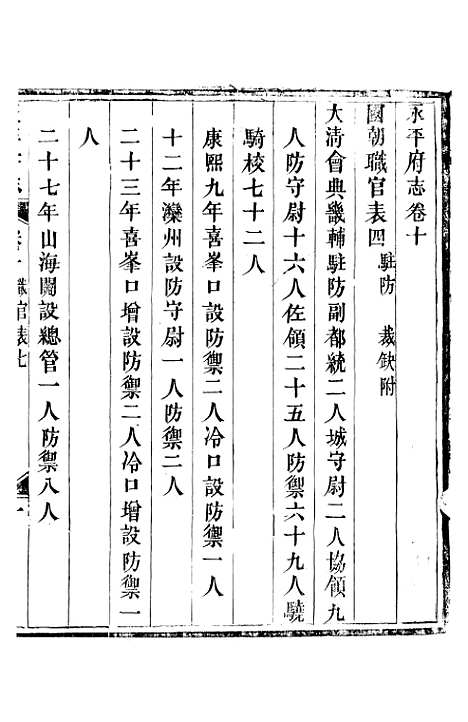 永平府志卷十
國朝職官表四 駐防 裁缺附
大清會典畿輔駐防副都統二人城守尉二人協領九
人防守尉十六人佐領二十五人防禦六十九人驍
騎校七十二人
康熙九年喜峯口設防禦二人冷口設防禦一人
十二年灤州設防守尉一人防禦二人
二十三年喜峯口增設防禦二人冷口增設防禦一
人
二十七年山海關設總管一人防禦八人
職官表七